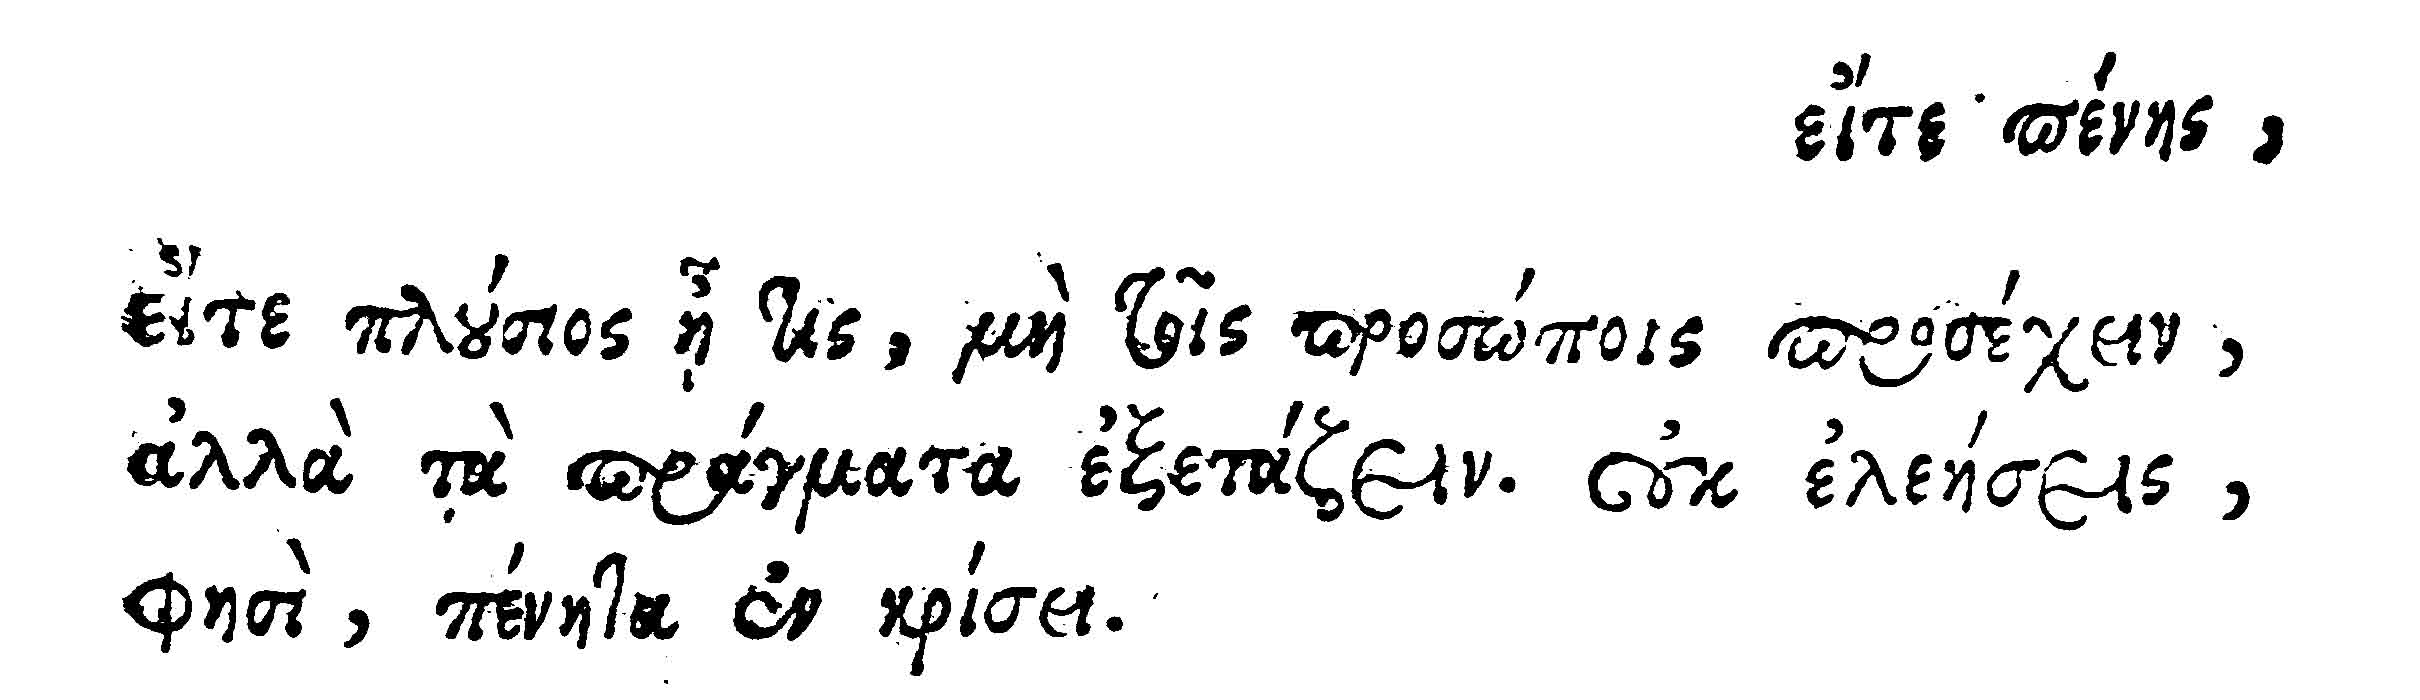 εἴτε πένης,
εἴτε πλούσιος ᾖ τις, μὴ τοῖς προσώποις προσέχειν,
ἀλλὰ τὰ πράγματα ἐξετάζειν. οὐκ ἐλεήσεις,
φησὶ, πένητα ἐν κρίσει.